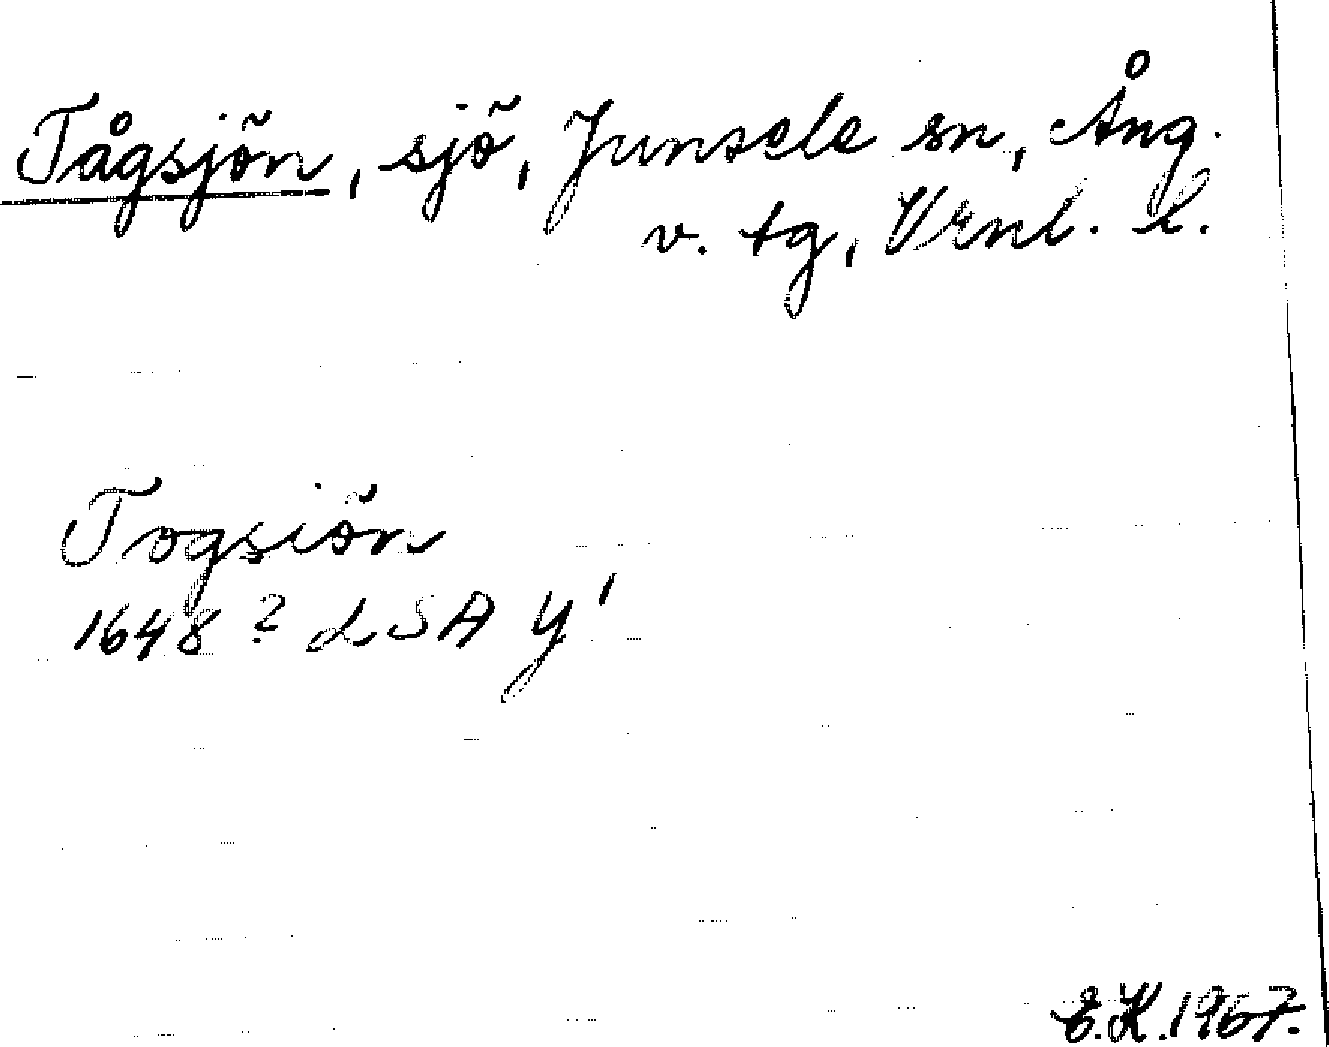 Tågsjön, sjö, Junsele sn, Ång.
v. tg, Vrnl. l.
Togsiön
1648? LSA Y¹
E.K. 1967.